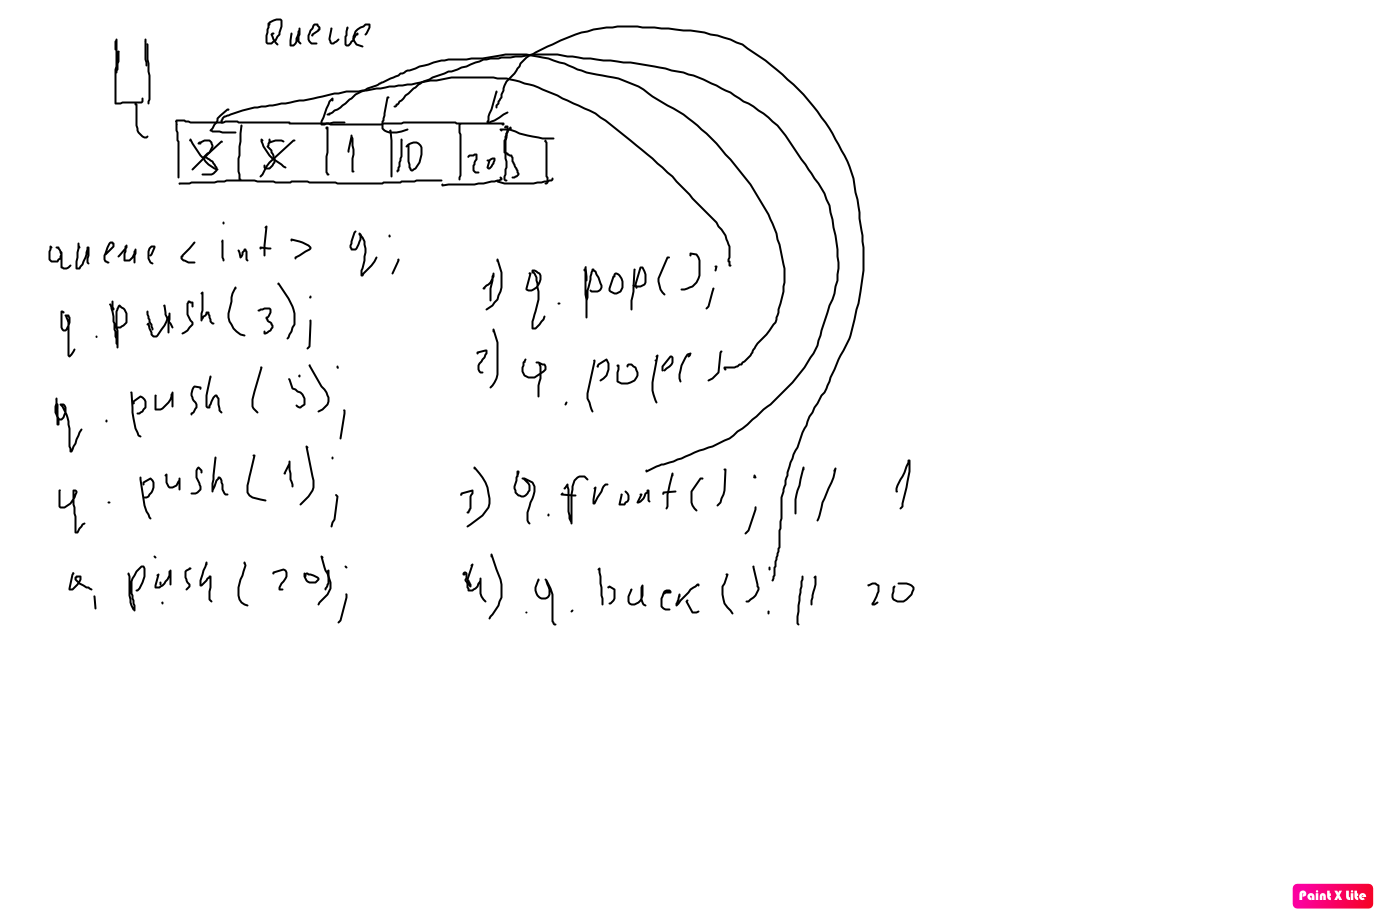 Queue
3 5 1 10 20 5
queue < int > q;
q.push(3);
q.push(5);
q.push(1);
q.push(20);
1) q.pop();
2) q.pop()
3) q.front(); // 1
4) q.back(); // 20
Paint X Lite